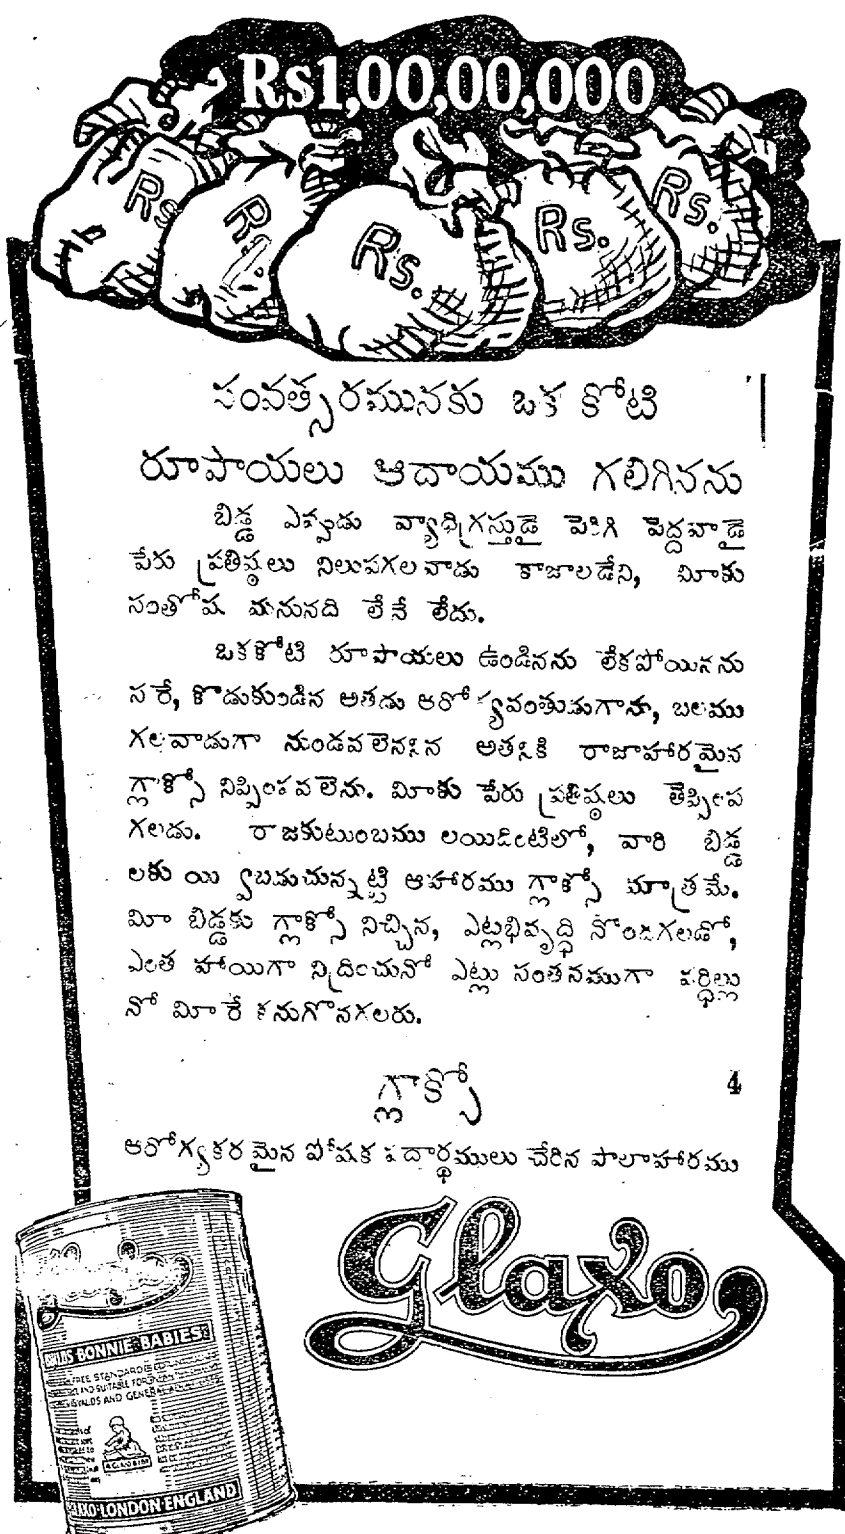 Rs1,00,00,000
Rs
Rs.
Rs.
Rs.
Rs.
సంవత్సరమునకు ఒక కోటి
రూపాయలు ఆదాయము గలిగినను
బిడ్డ ఎప్పుడు వ్యాధిగ్రస్తుడై పెరిగి పెద్దవాడై
పేరు ప్రతిష్ఠలు నిలుపగలవాడు కాజాలడేని, మీకు
సంతోష మనునది లేనే లేదు.
ఒకకోటి రూపాయలు ఉండినను లేకపోయినను
సరే, కొడుకుండిన అతడు ఆరోగ్యవంతుడుగాను, బలము
గలవాడుగా నుండవలెననిన అతనికి రాజాహారమైన
గ్లాక్సో నిప్పింపవలెను. మీకు పేరు ప్రతిష్ఠలు తెప్పింప
గలడు. రాజకుటుంబము లయిదింటిలో, వారి బిడ్డ
లకు యివ్వబడుచున్నట్టి ఆహారము గ్లాక్సో మాత్రమే.
మీ బిడ్డకు గ్లాక్సో నిచ్చిన, ఎట్లభివృద్ధి నొందగలడో,
ఎంత హాయిగా నిద్రించునో ఎట్లు సంతసముగా వర్ధిల్లు
నో మీరే కనుగొనగలరు.
గ్లాక్సో
4
ఆరోగ్యకరమైన పోషక పదార్థములు చేరిన పాలాహారము
Glaxo
BUILDS BONNIE BABIES
FREE STANDARD
AND SUITABLE FOR
INVALIDS AND GENERAL
GLAXO LONDON ENGLAND